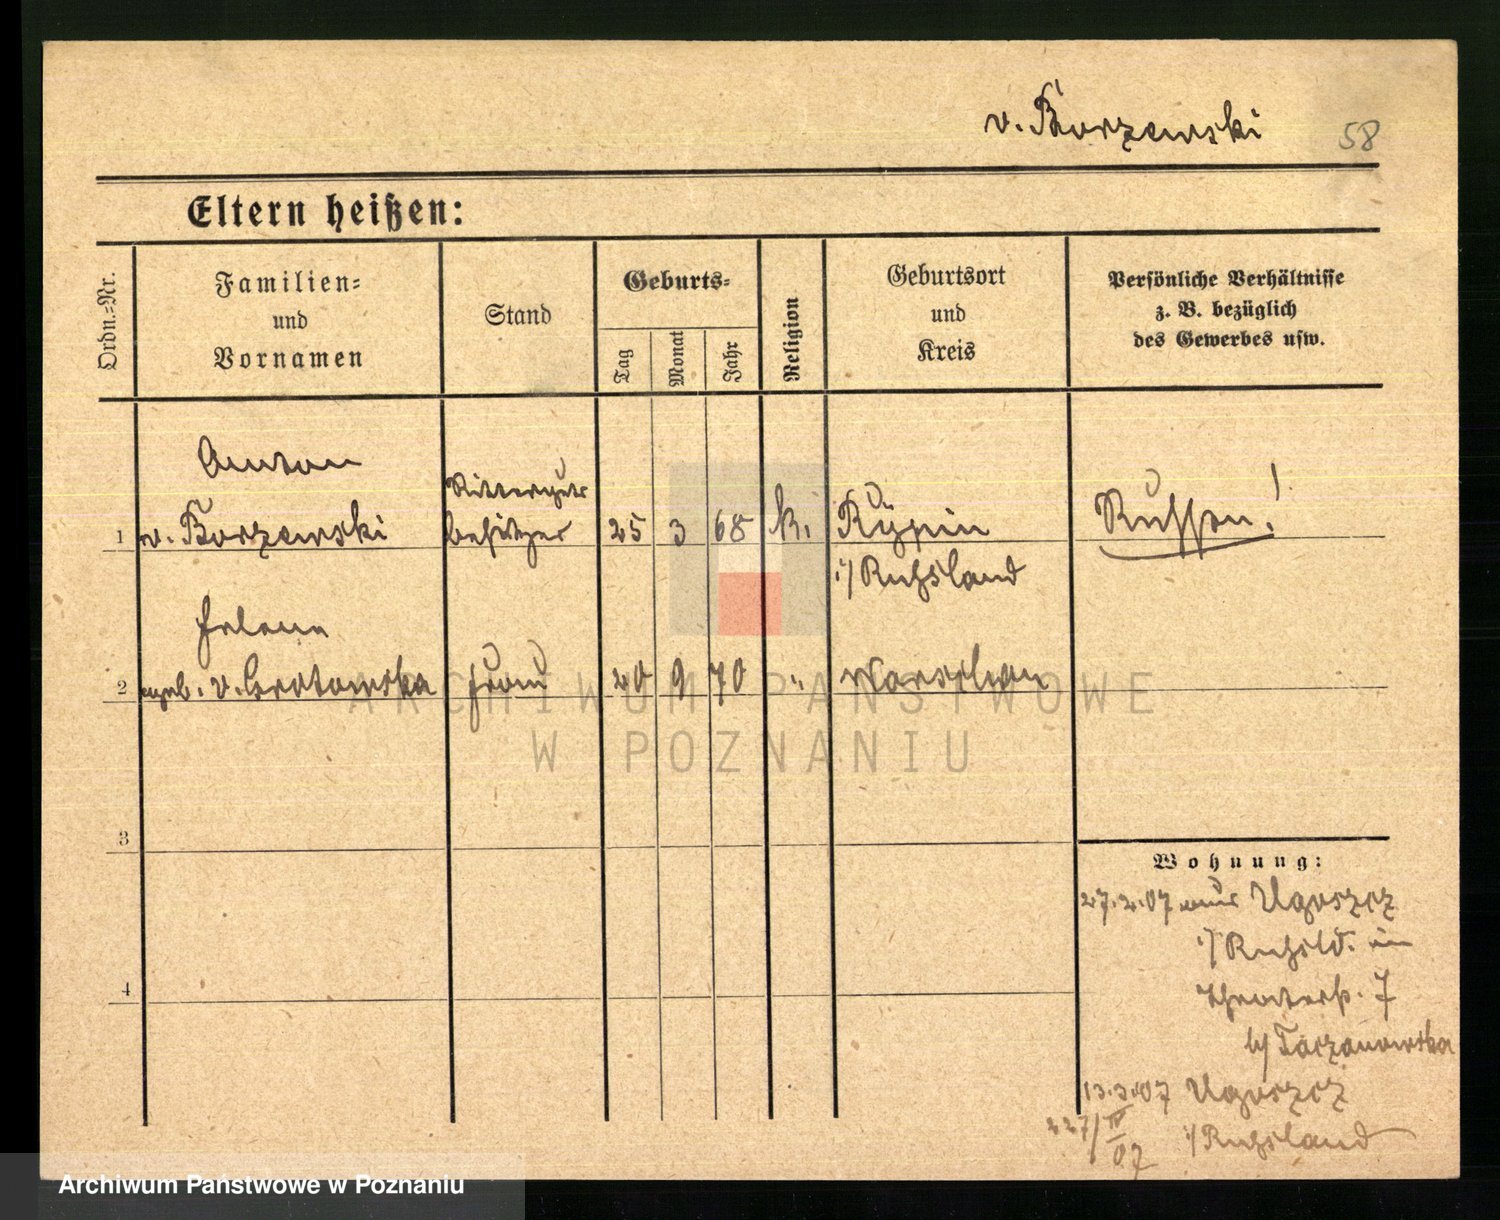 v. Borzewski
58
Eltern heißen:
Ordn.-Nr.
Familien-
und
Vornamen
Stand
Geburts-
Tag
Monat
Jahr
Religion
Geburtsort
und
Kreis
Persönliche Verhältnisse
z. B. bezüglich
des Gewerbes usw.
Anton
1 v. Borzewski
Ritterguts
besitzer
25 3 68 k.
Rypin
i/Rußland
Russen!
Helene
2 geb. v. Grotowska
Frau
20 9 70 "
Warschau
3
4
Wohnung:
27.2.07 aus Ugoszcz
i/Rußld. in
Theaterst. 7
b/ Taczanowska
13.3.07 Ugoszcz
227/III 07 i/Rußland
ARCHIWUM PAŃSTWOWE
W POZNANIU
Archiwum Państwowe w Poznaniu